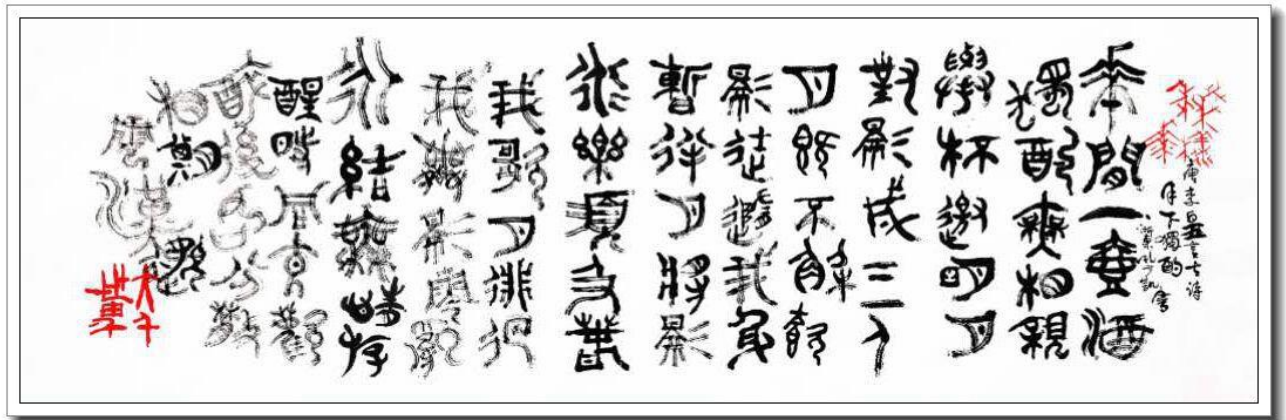 唐李白五言古诗
月下獨酌
華間一壺酒
獨酌無相親
舉杯邀明月
對影成三人
月既不解飲
影徒隨我身
暫伴月將影
行樂須及春
我歌月徘徊
我舞影零亂
永結無情遊
醒時同交歡
醉後各分散
相期邈
雲漢